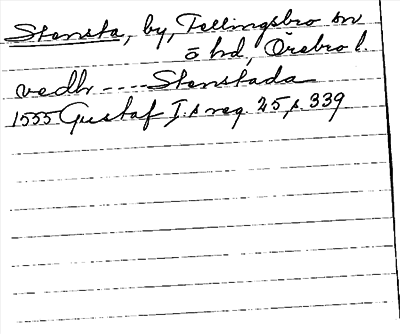 Stensta, by, Fellingsbro sn
ö hd, Örebro l.
vedh ---- Stenstada
1555 Gustaf I:s reg. 25, s. 339